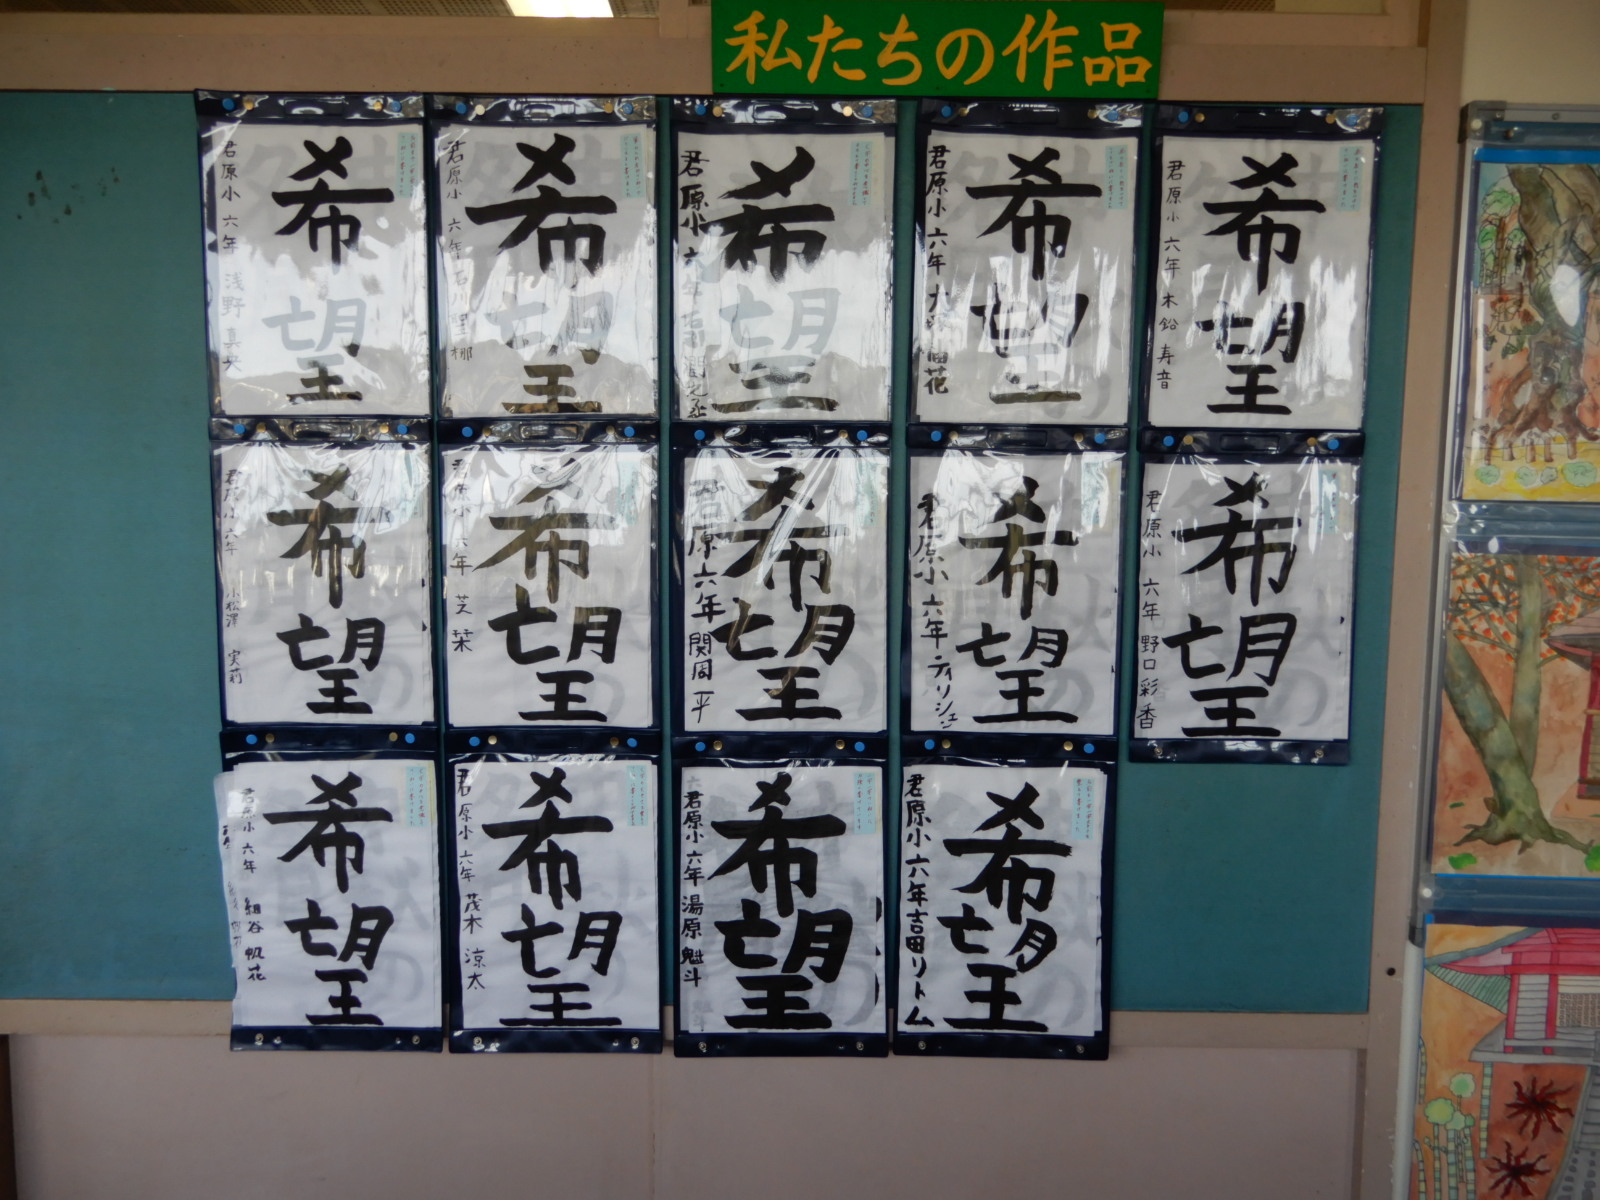 私たちの作品
希望
君原小 六年 浅野 真央
希望
君原小 六年 石川
希望
君原小 六年
希望
君原小 六年
希望
君原小 六年 木鉛 寿音
希望
君原小 六年 小松澤 実莉
希望
君原小 六年 芝 栞
希望
君原小 六年 関周平
希望
君原小 六年・ティリシェ
希望
君原小 六年 野口 彩香
希望
君原小 六年 細谷 帆花
希望
君原小 六年 茂木 涼太
希望
君原小 六年 湯原 魁斗
希望
君原小 六年 吉田リトム